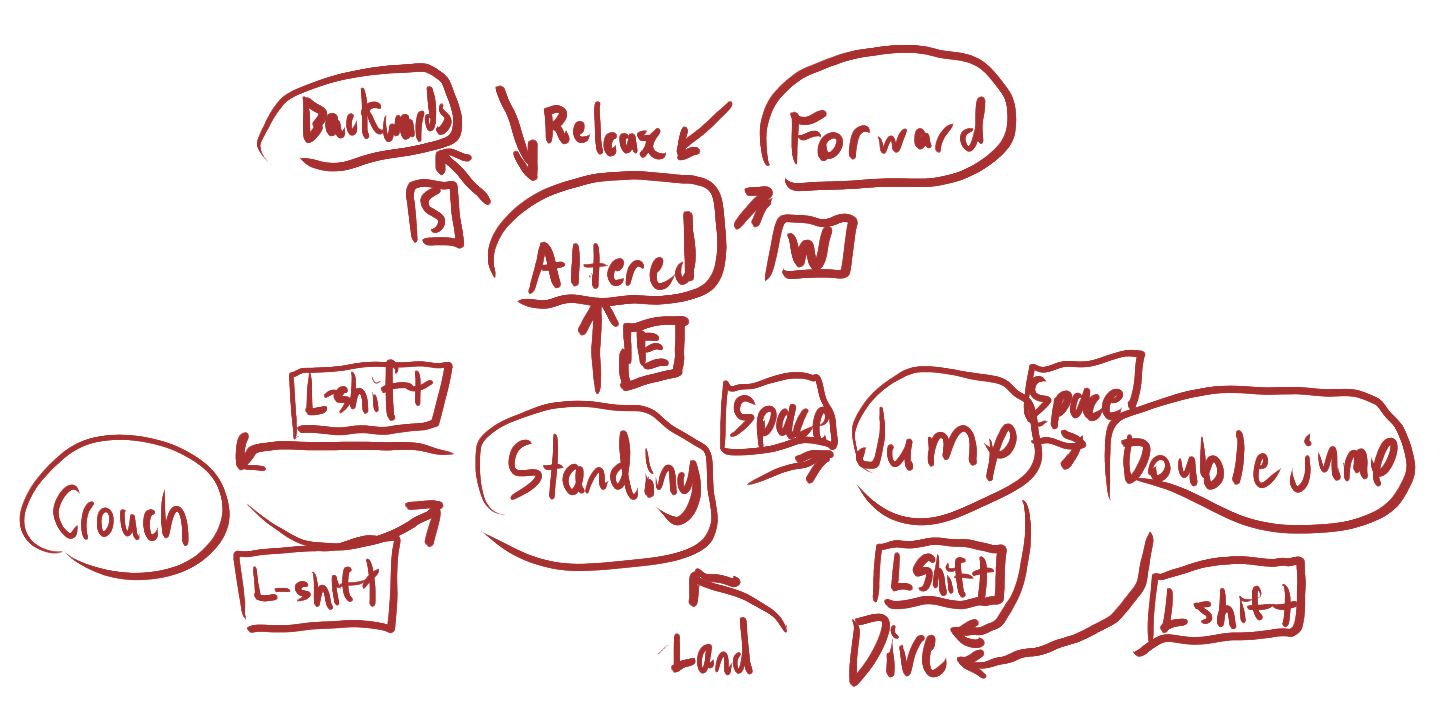 Backwards
Release
Forward
S
W
Altered
E
L-shift
Space
Space
Standing
Jump
Double jump
Crouch
L-shift
LShift
L shift
Land
Dive